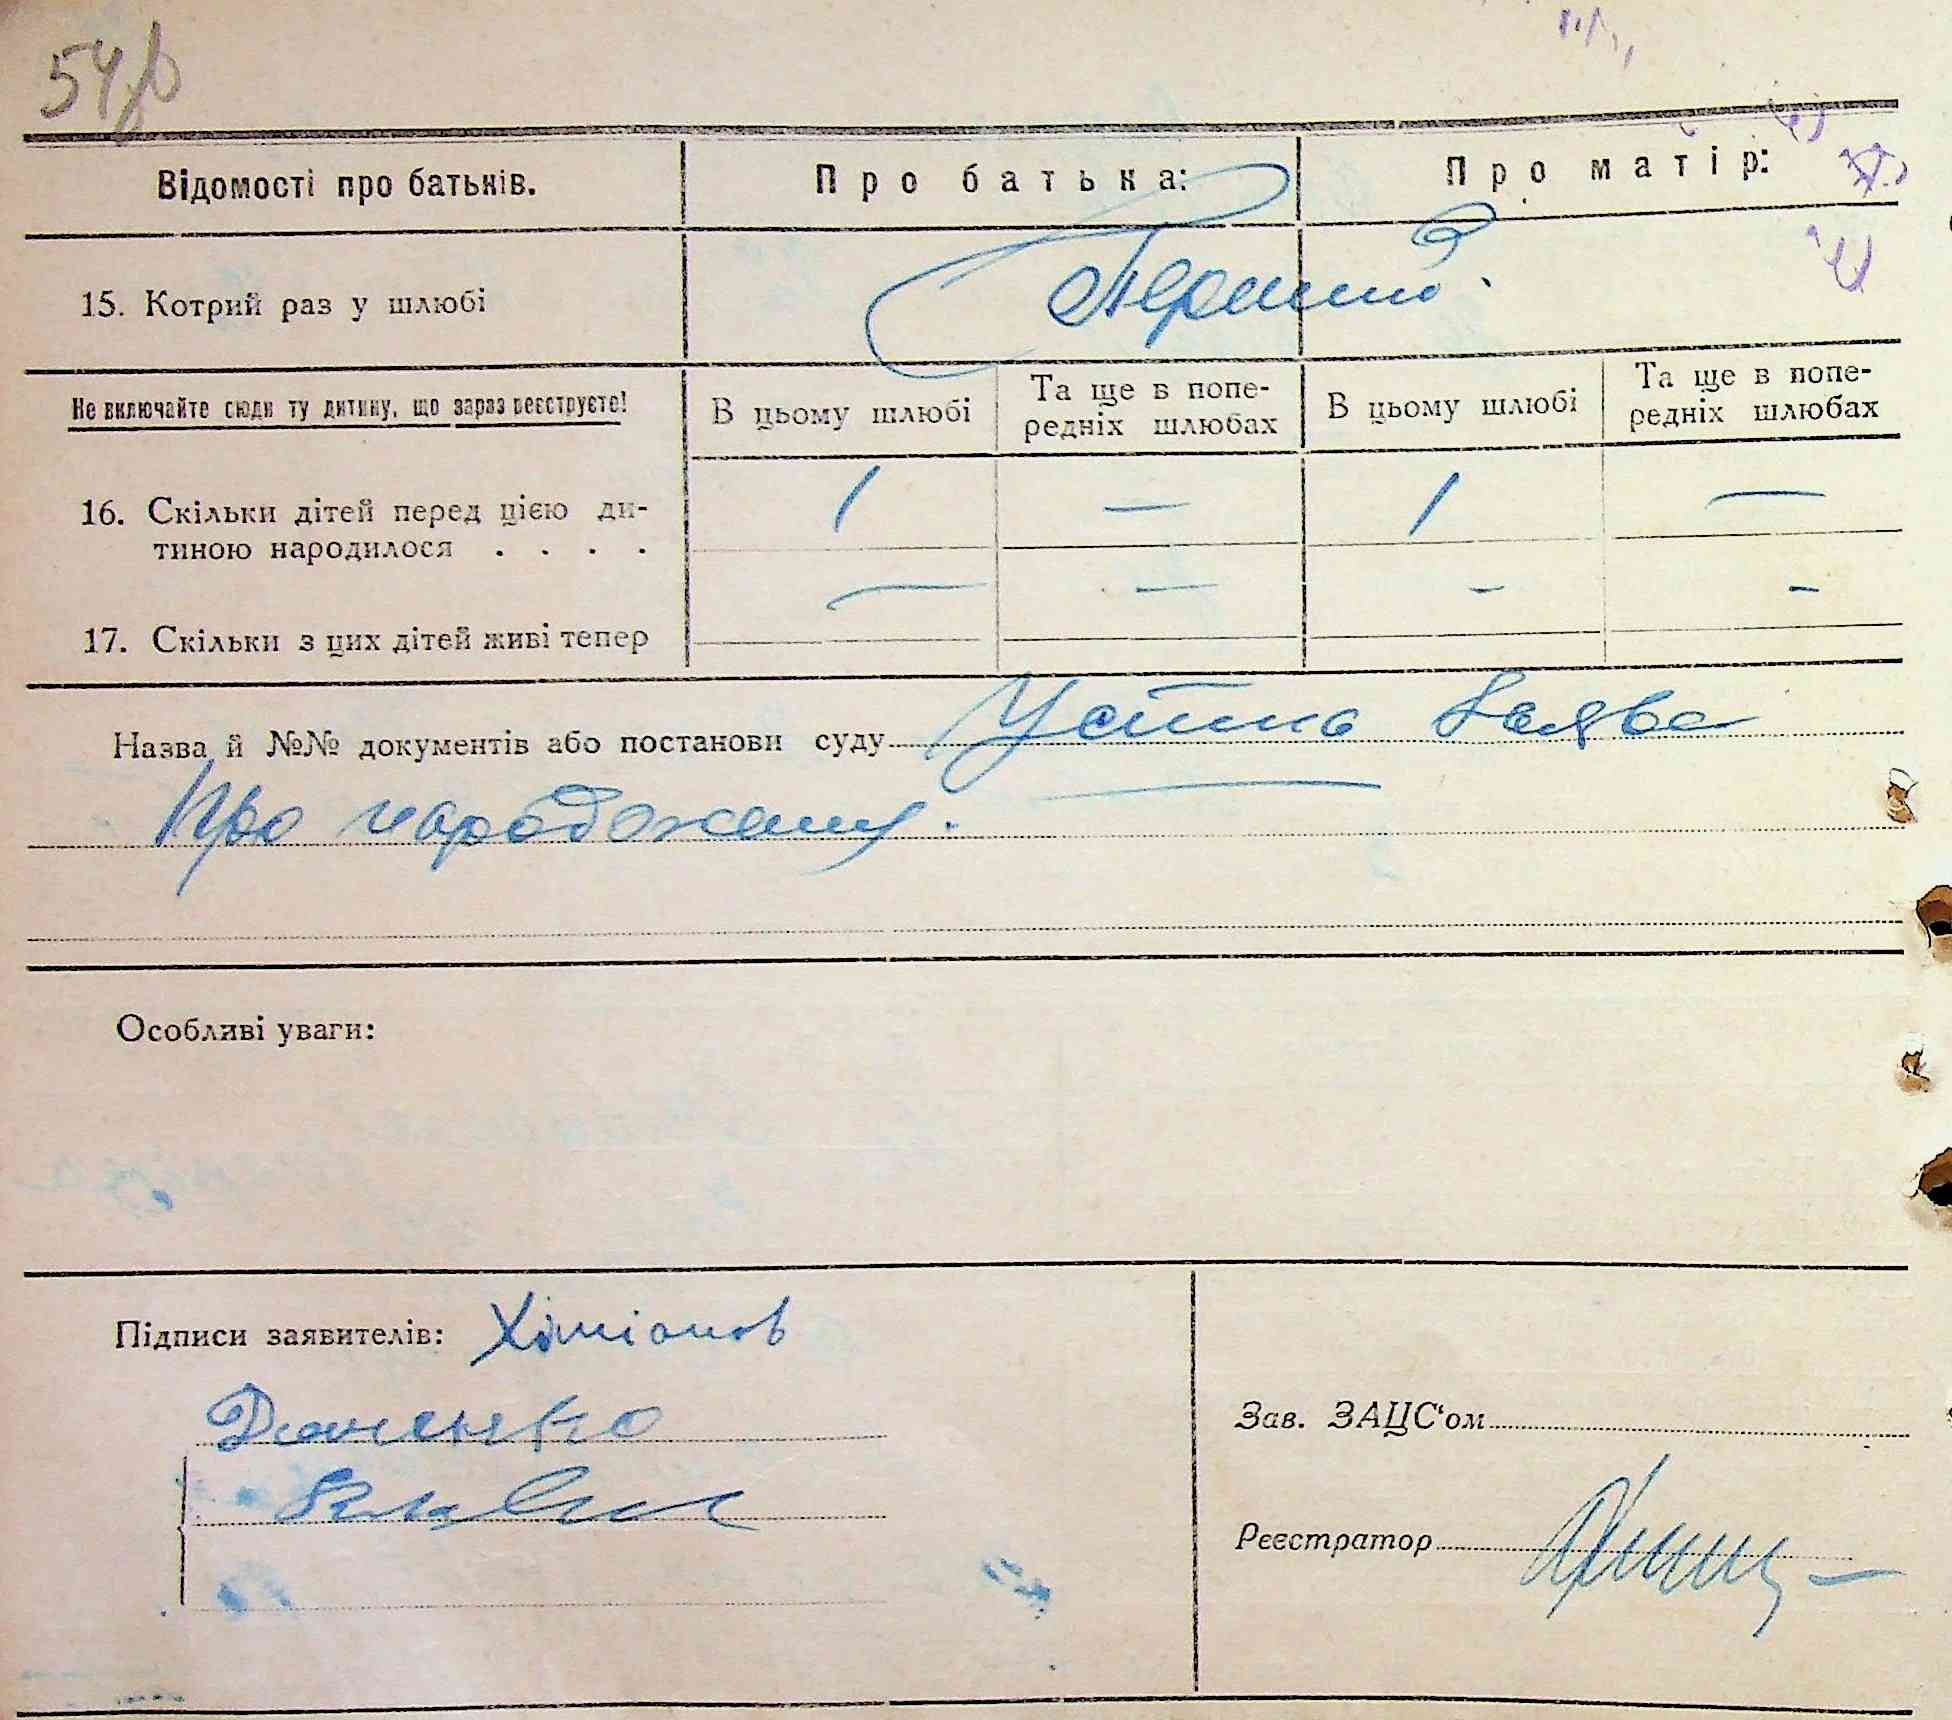 54
Відомості про батьків.
Про батька:
Про матір:
15. Котрий раз у шлюбі
Перший.
Не включайте сюди ту дитину, що зараз реєструєте!
В цьому шлюбі
Та ще в попе-
редніх шлюбах
В цьому шлюбі
Та ще в попе-
редніх шлюбах
16. Скільки дітей перед цією ди-
тиною народилося . . . .
1 — 1 —
17. Скільки з цих дітей живі тепер
— — - -
Назва й №№ документів або постанови суду Устна заява
про народження.
Особливі уваги:
Підписи заявителів:
Зав. ЗАЦС'ом
Реєстратор